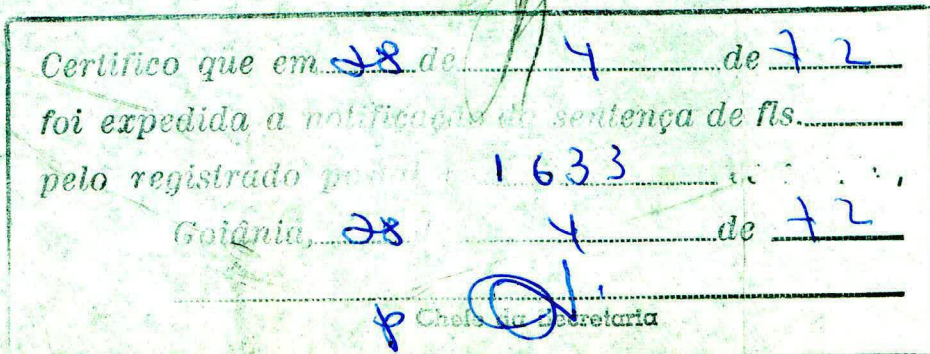 Certifico que em 28 de 4 de 72
foi expedida a notificação da sentença de fls.
pelo registrado postal 1633
Goiânia, 28 4 de 72
p Chefe da Secretaria